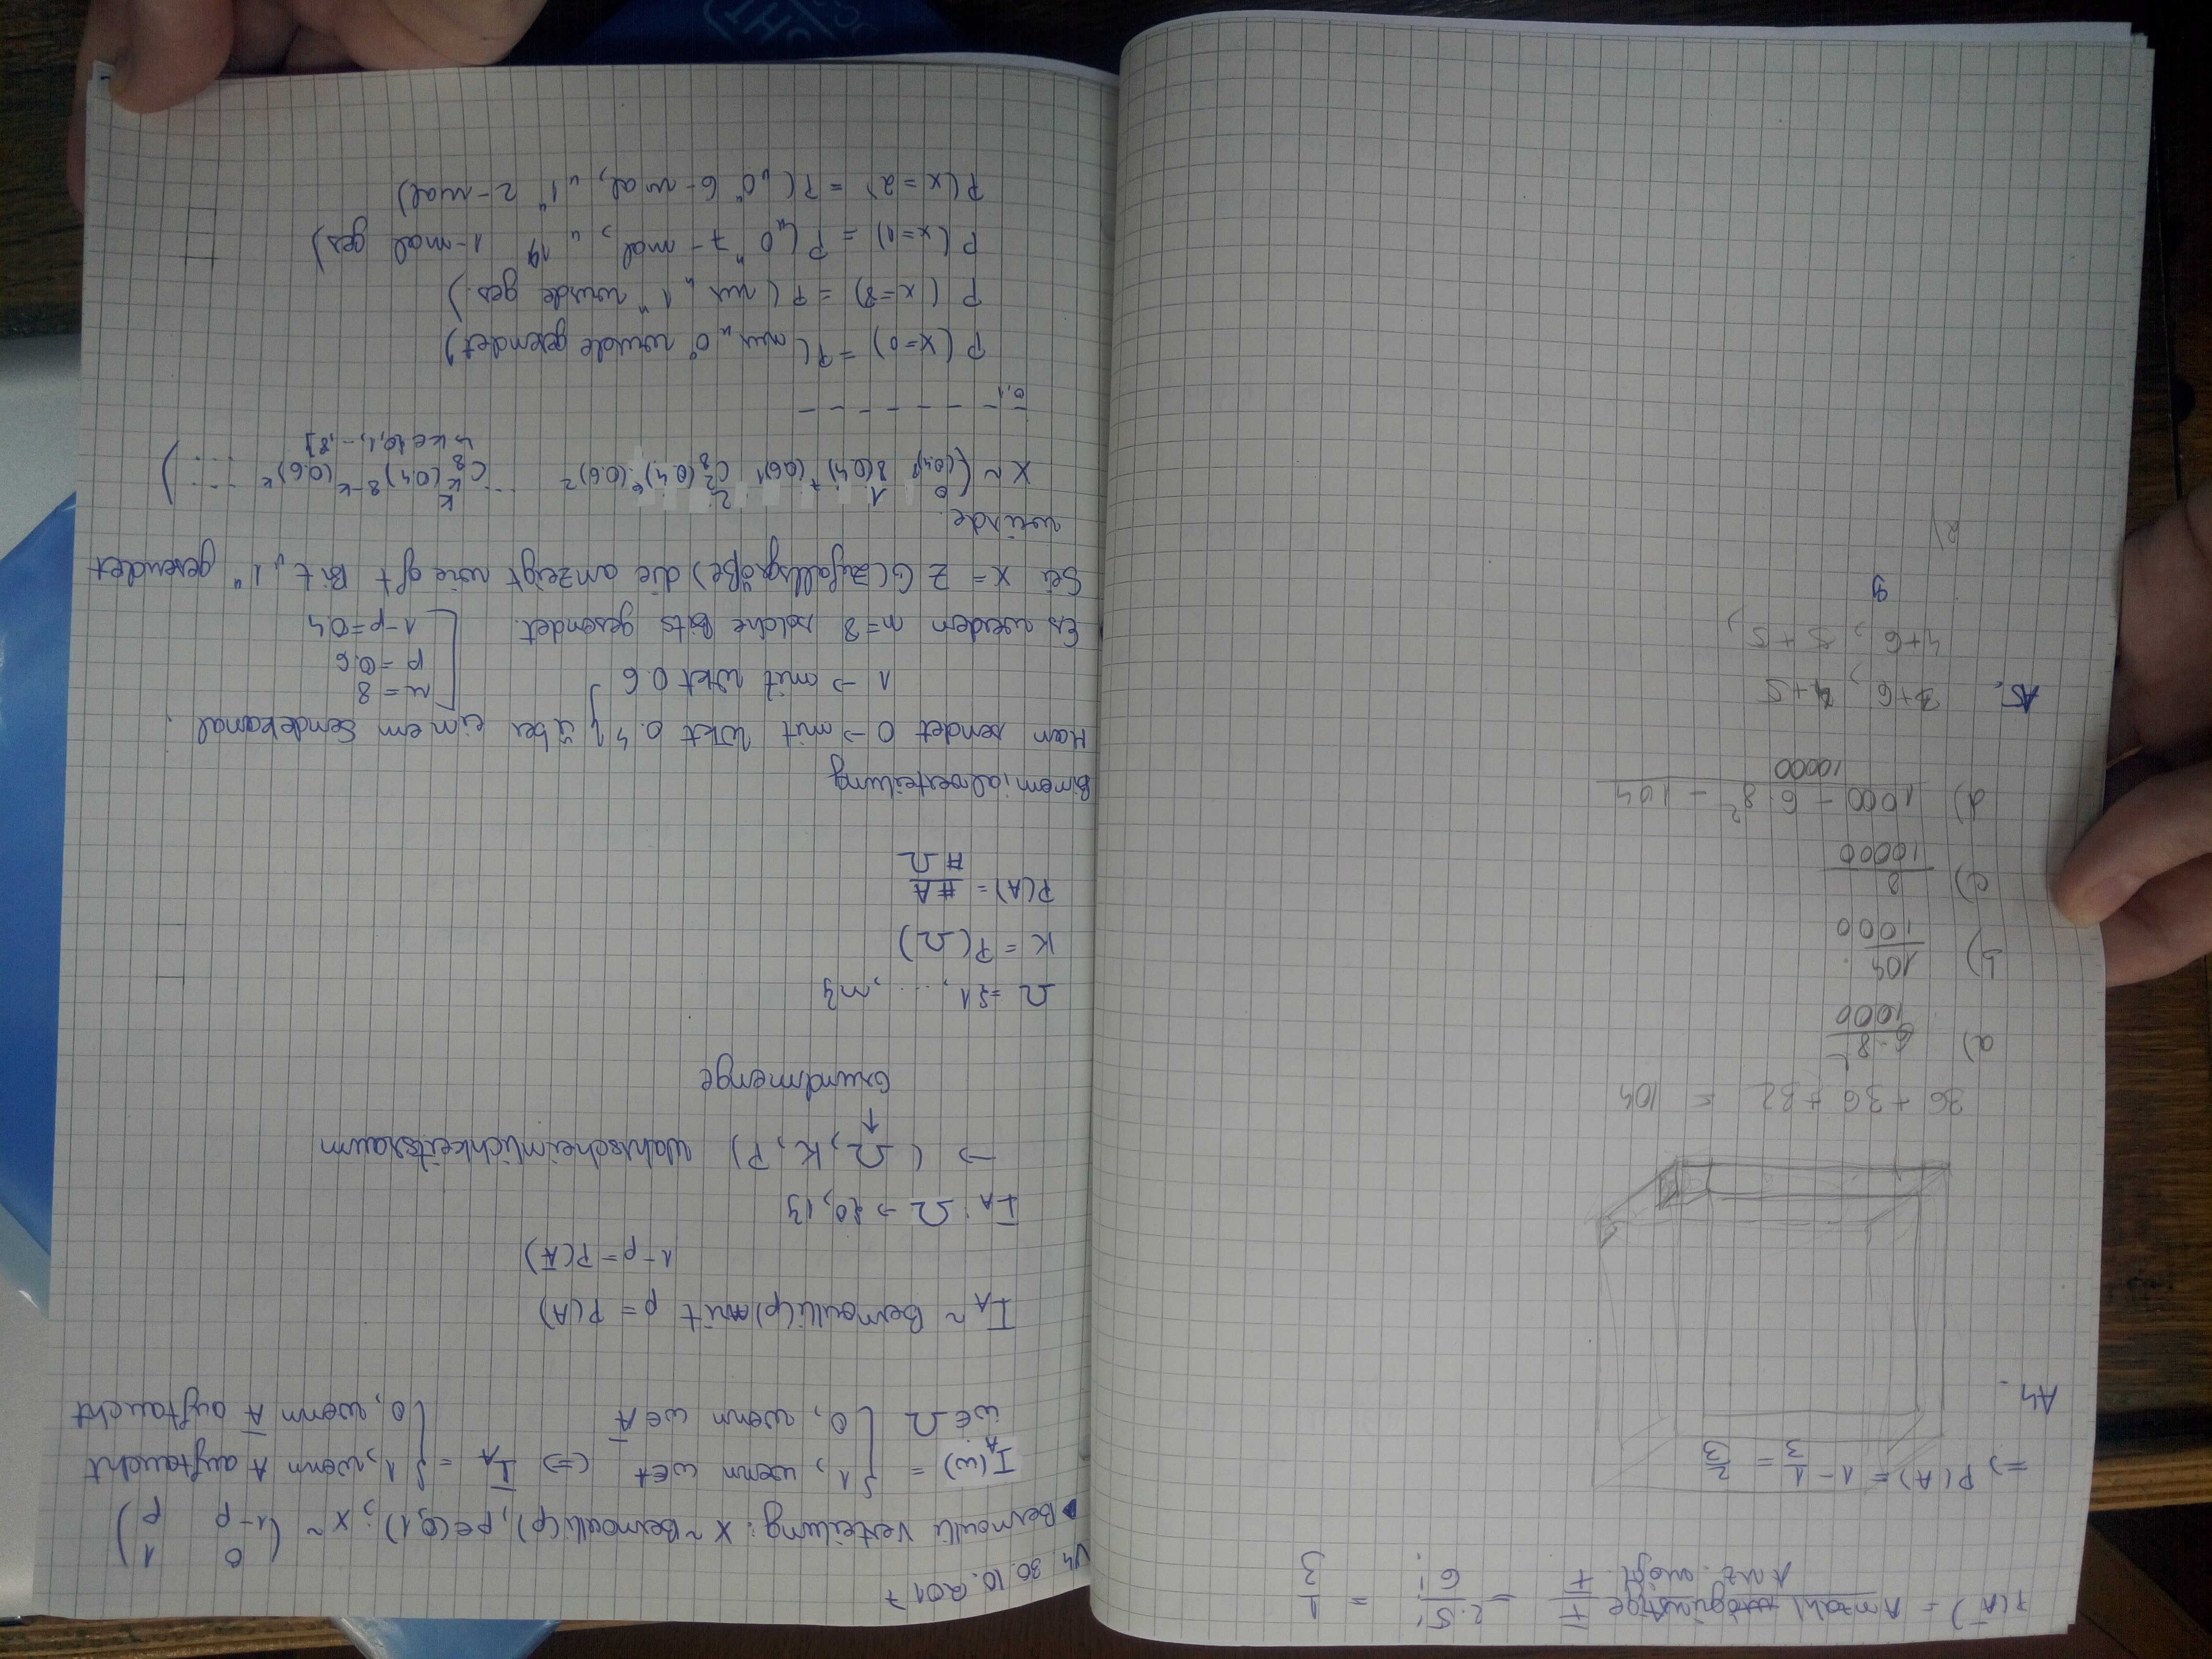 P(A̅) = Anzahl günstige F / Anz. mögl. F = 2·5! / 6! = 1/3
=> P(A) = 1 - 1/3 = 2/3
A4.
36 + 36 + 32 = 104
a) 6·8² / 1000
b) 104 / 1000
c) 8 / 10000
d) 1000 - 6·8² - 104 / 10000
A5. 3+6, 4+5
4+6, 5+5,
9
2)
V4 30.10.2017
Bernoulli Verteilung: X ~ Bernoulli(p), p∈(0,1); X ~ (0 1 / 1-p p)
I_A(ω) = { 1, wenn ω∈A <=> I_A = { 1, wenn A auftaucht
ω∈Ω { 0, wenn ω∈A̅ { 0, wenn A̅ auftaucht
I_A ~ Bernoulli(p) mit p = P(A)
1-p = P(A̅)
I_A: Ω → {0,1}
→ (Ω, K, P) Wahrscheinlichkeitsraum
↑
Grundmenge
Ω = {1, ..., n}
K = P(Ω)
P(A) = #A / #Ω
Binomialverteilung
Man sendet 0 → mit Wkt 0.4 } über einem Sendekanal.
1 → mit Wkt 0.6
[ n = 8
p = 0.6
1-p = 0.4
Es werden n=8 solche Bits gesendet.
Sei X = ZG (Zufallsgröße) die anzeigt wie oft Bit „1" gesendet
wurde.
X ~ (0 1 2 ... k ... / (0.4)⁸ 8(0.4)⁷(0.6)¹ C₈²(0.4)⁶(0.6)² ... C₈ᵏ(0.4)⁸⁻ᵏ(0.6)ᵏ ...)
↳ k∈{0,1,...,8}
_ _ _ _ _ _ _ _
0,1
P(X=0) = P(nur „0" wurde gesendet)
P(X=8) = P(nur „1" wurde ges.)
P(X=1) = P(„0" 7-mal, „1" 1-mal ges)
P(X=2) = P(„0" 6-mal, „1" 2-mal)